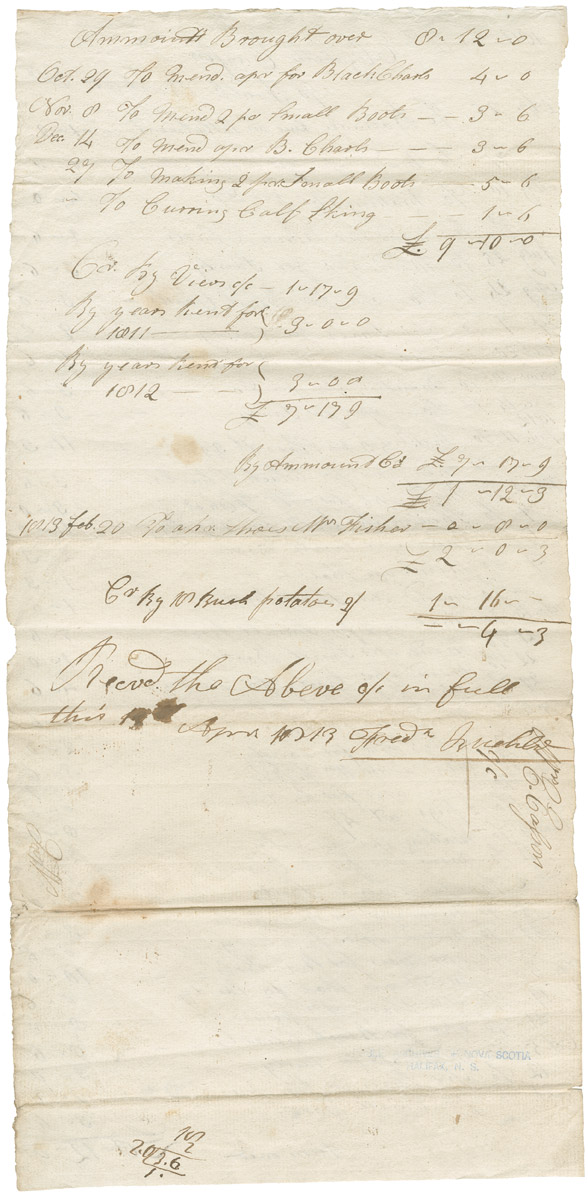 Ammount Brought over 8 ~ 12 ~ 0
Oct. 29 To Mend. apr for Black Charls 4 ~ 0
Nov. 8 To Mend 2 pr Small Boots - - 3 ~ 6
Dec. 14 To Mend apr B. Charls - - 3 ~ 6
27 To Making 2 prs Small Boots - 5 ~ 6
" To Curring Calf Sking - - 1 ~ 6
£. 9 ~ 10 ~ 0
Cr. By - 1 ~ 17 ~ 9
By years Rent for
1811 3 ~ 0 ~ 0
By years Rent for
1812 3 ~ 0 0
£ 7 ~ 17 9
By Ammound Cd £. 7 ~ 17 ~ 9
£. 1 ~ 12 ~ 3
1813 Feb. 20 To apr Shoes Mrs Fisher - 0 ~ 8 ~ 0
2 ~ 0 ~ 3
Cr By 18 Bush potatoes 2/ 1 ~ 16 ~ -
= ~ 4 ~ 3
Recvd the Above a/c in full
this Apri 1813 Fredk
a/c
2.0
3.6
NOVA SCOTIA
HALIFAX, N. S.